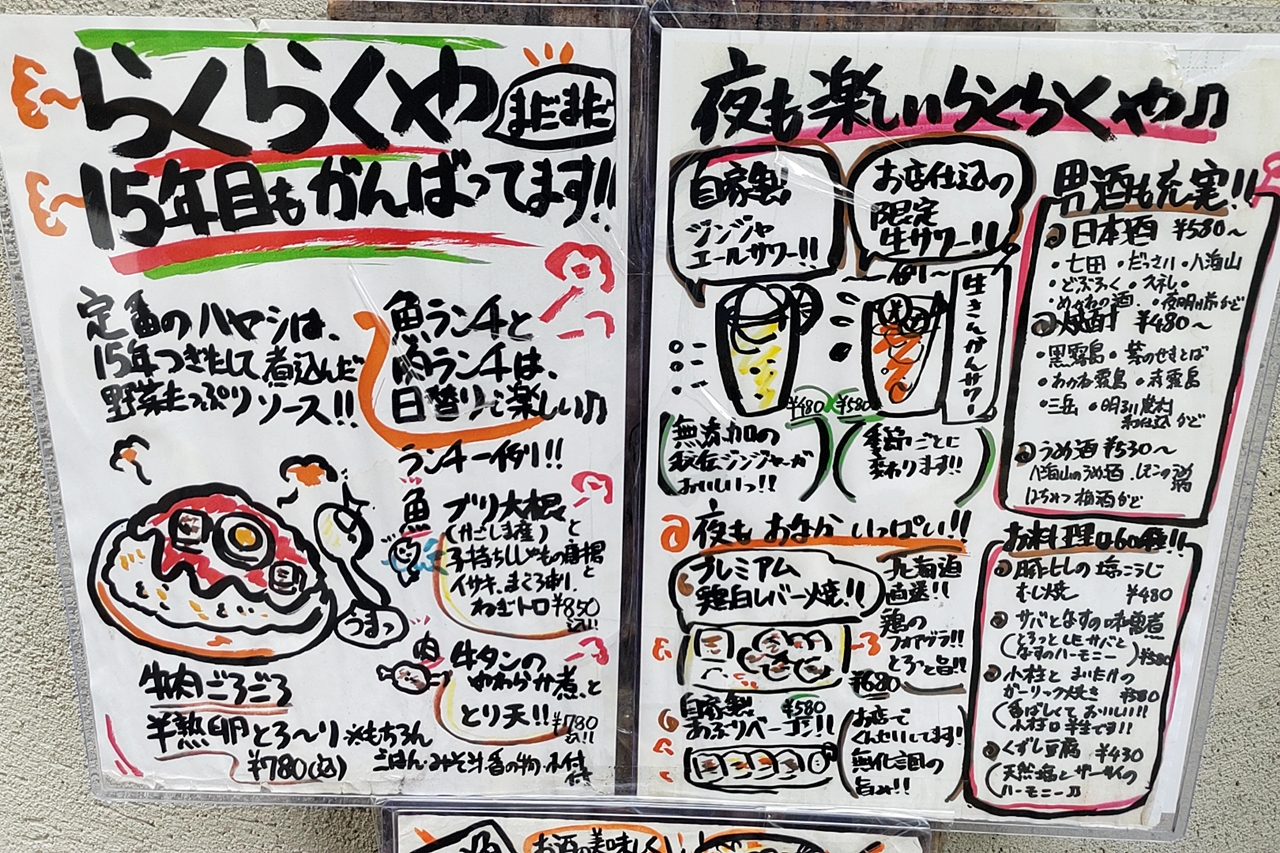 らくらくや
まだまだ
15年目もがんばってます!!
定番のハヤシは、
15年つぎたして煮込んだ
野菜たっぷりソース!!
魚ランチと
肉ランチは、
日替りで楽しい♫
ランチ一例!!
魚
ブリ大根
(かごしま産)と
イサキ、まぐろ刺!
ねぎトロ ¥850
込!!
うまっ
牛タンの
やわらか煮、と
とり天!! ¥780
込!!
牛肉ごろごろ
半熟卵とろ〜り ※もちろん
¥780(込)
ごはん・みそ汁・香の物・小付
付き
夜も楽しいらくらくや♫
自家製!
ジンジャ
エールサワー!!
お店仕込の
限定
生サワー!!
〜例〜
生きんかんサワー
¥480
¥580
無添加の
秘伝ジンジャーが
おいしいっ!!
季節ごとに
変わります!!
夜もおなかいっぱい!!
プレミアム
鶏白レバー焼!!
北海道
直送!!
鶏の
フォアグラ!!
とろっと旨!!
¥680
自家製 ¥580
あぶりベーコン!!
お店で
くんせいしてます!
無化調の
旨み!!
男酒も充実!!
日本酒 ¥580〜
・七田 ・だっさい ・八海山
・どぶろく
焼酎 ¥480〜
・黒霧島
・赤霧島
・三岳 ・明るい農村
など
うめ酒 ¥530〜
八海山のうめ酒
はちみつ梅酒など
お料理は60種!!
豚とレの塩こうじ
むし焼 ¥480
サバとなすの味噌煮
(とろっとしたサバと
なすのハーモニー) ¥580
小柱とまいたけの
ガーリック焼き ¥580
(香ばしくておいしい!!
小柱は半生です!!
くずし豆腐 ¥430
(天然塩とザーサイの
ハーモニー♫
お酒の美味しく